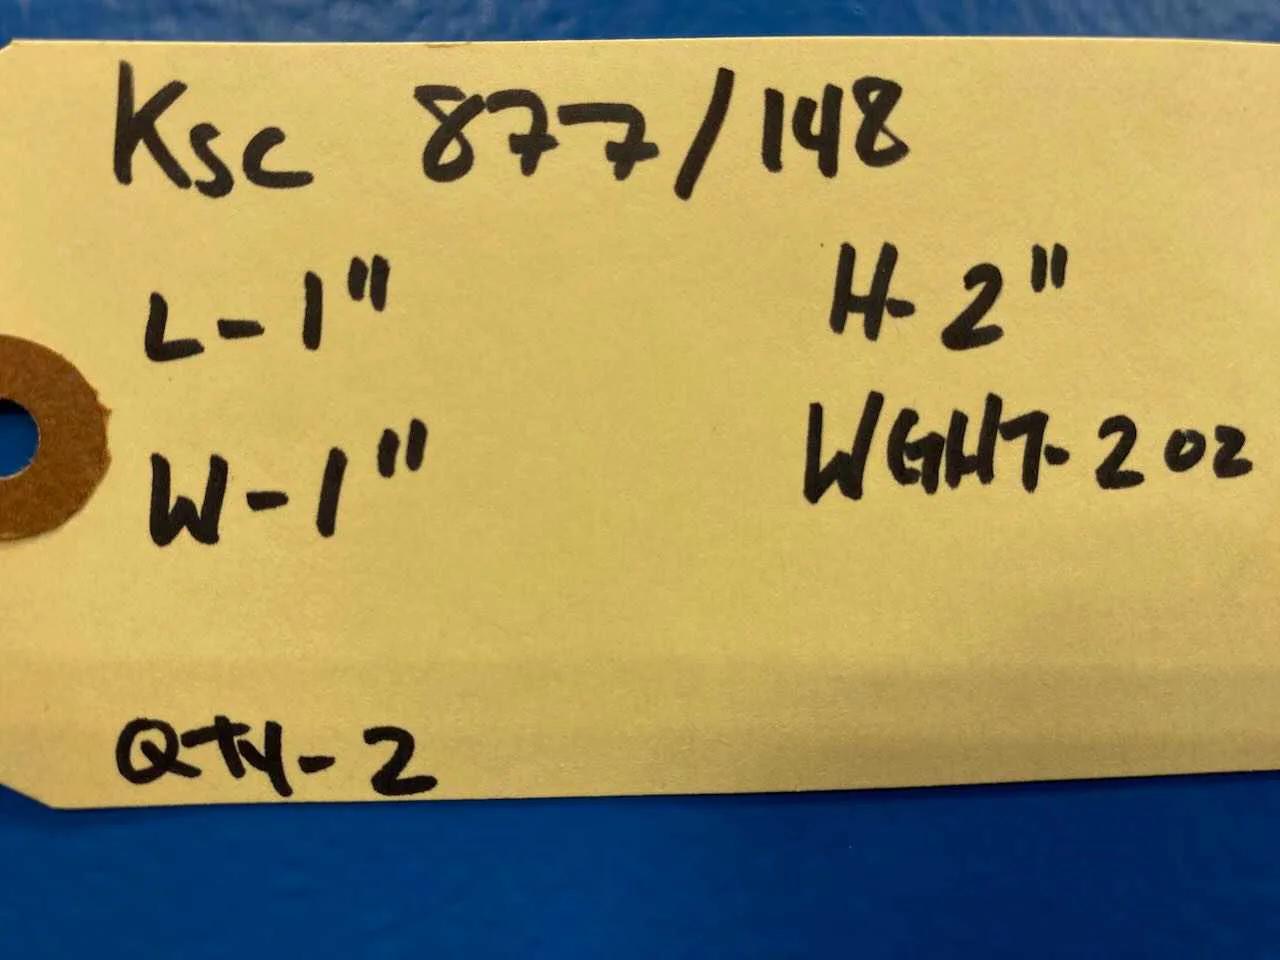 Ksc 877/148
L-1" H-2"
W-1" WGHT-2 oz
QTY-2